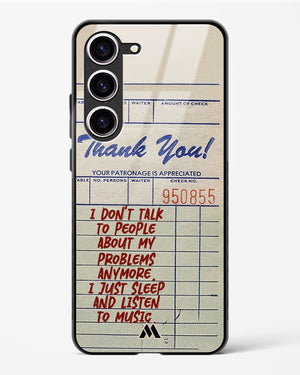 WAITER AMOUNT OF CHECK
Thank You!
YOUR PATRONAGE IS APPRECIATED
ABLE NO. PERSONS WAITER CHECK NO.
950855
I DON'T TALK
TO PEOPLE
ABOUT MY
PROBLEMS
ANYMORE.
I JUST SLEEP
AND LISTEN
TO MUSIC